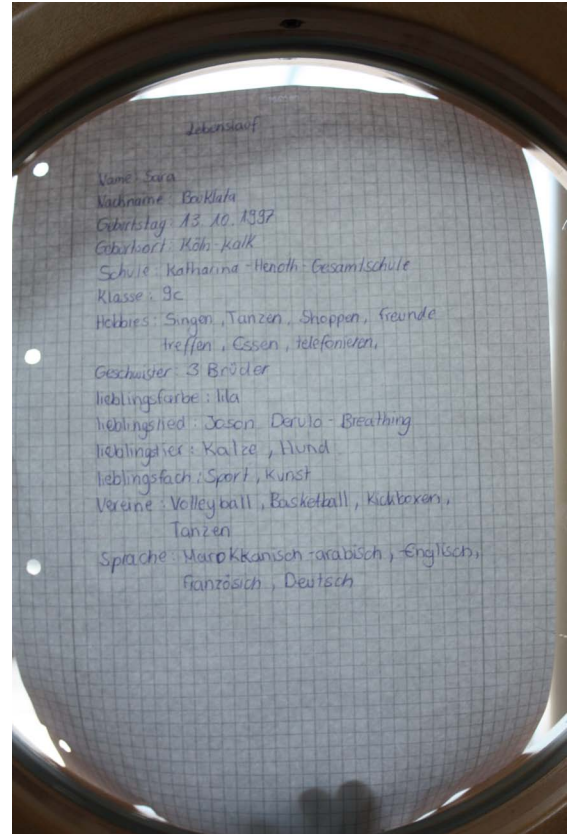 Lebenslauf
Name: Sara
Nachname: Backlata
Geburtstag: 13.10.1997
Geburtsort: Köln-Kalk
Schule: Katharina-Henoth-Gesamtschule
Klasse: 9c
Hobbies: Singen, Tanzen, Shoppen, freunde
treffen, Essen, telefonieren,
Geschwister: 3 Brüder
lieblingsfarbe: lila
lieblingslied: Jason Derulo - Breathing
lieblingstier: Katze, Hund
lieblingsfach: Sport, Kunst
Vereine: Volleyball, Basketball, Kickboxen,
Tanzen
Sprache: Marokkanisch-arabisch, Englisch,
französich, Deutsch